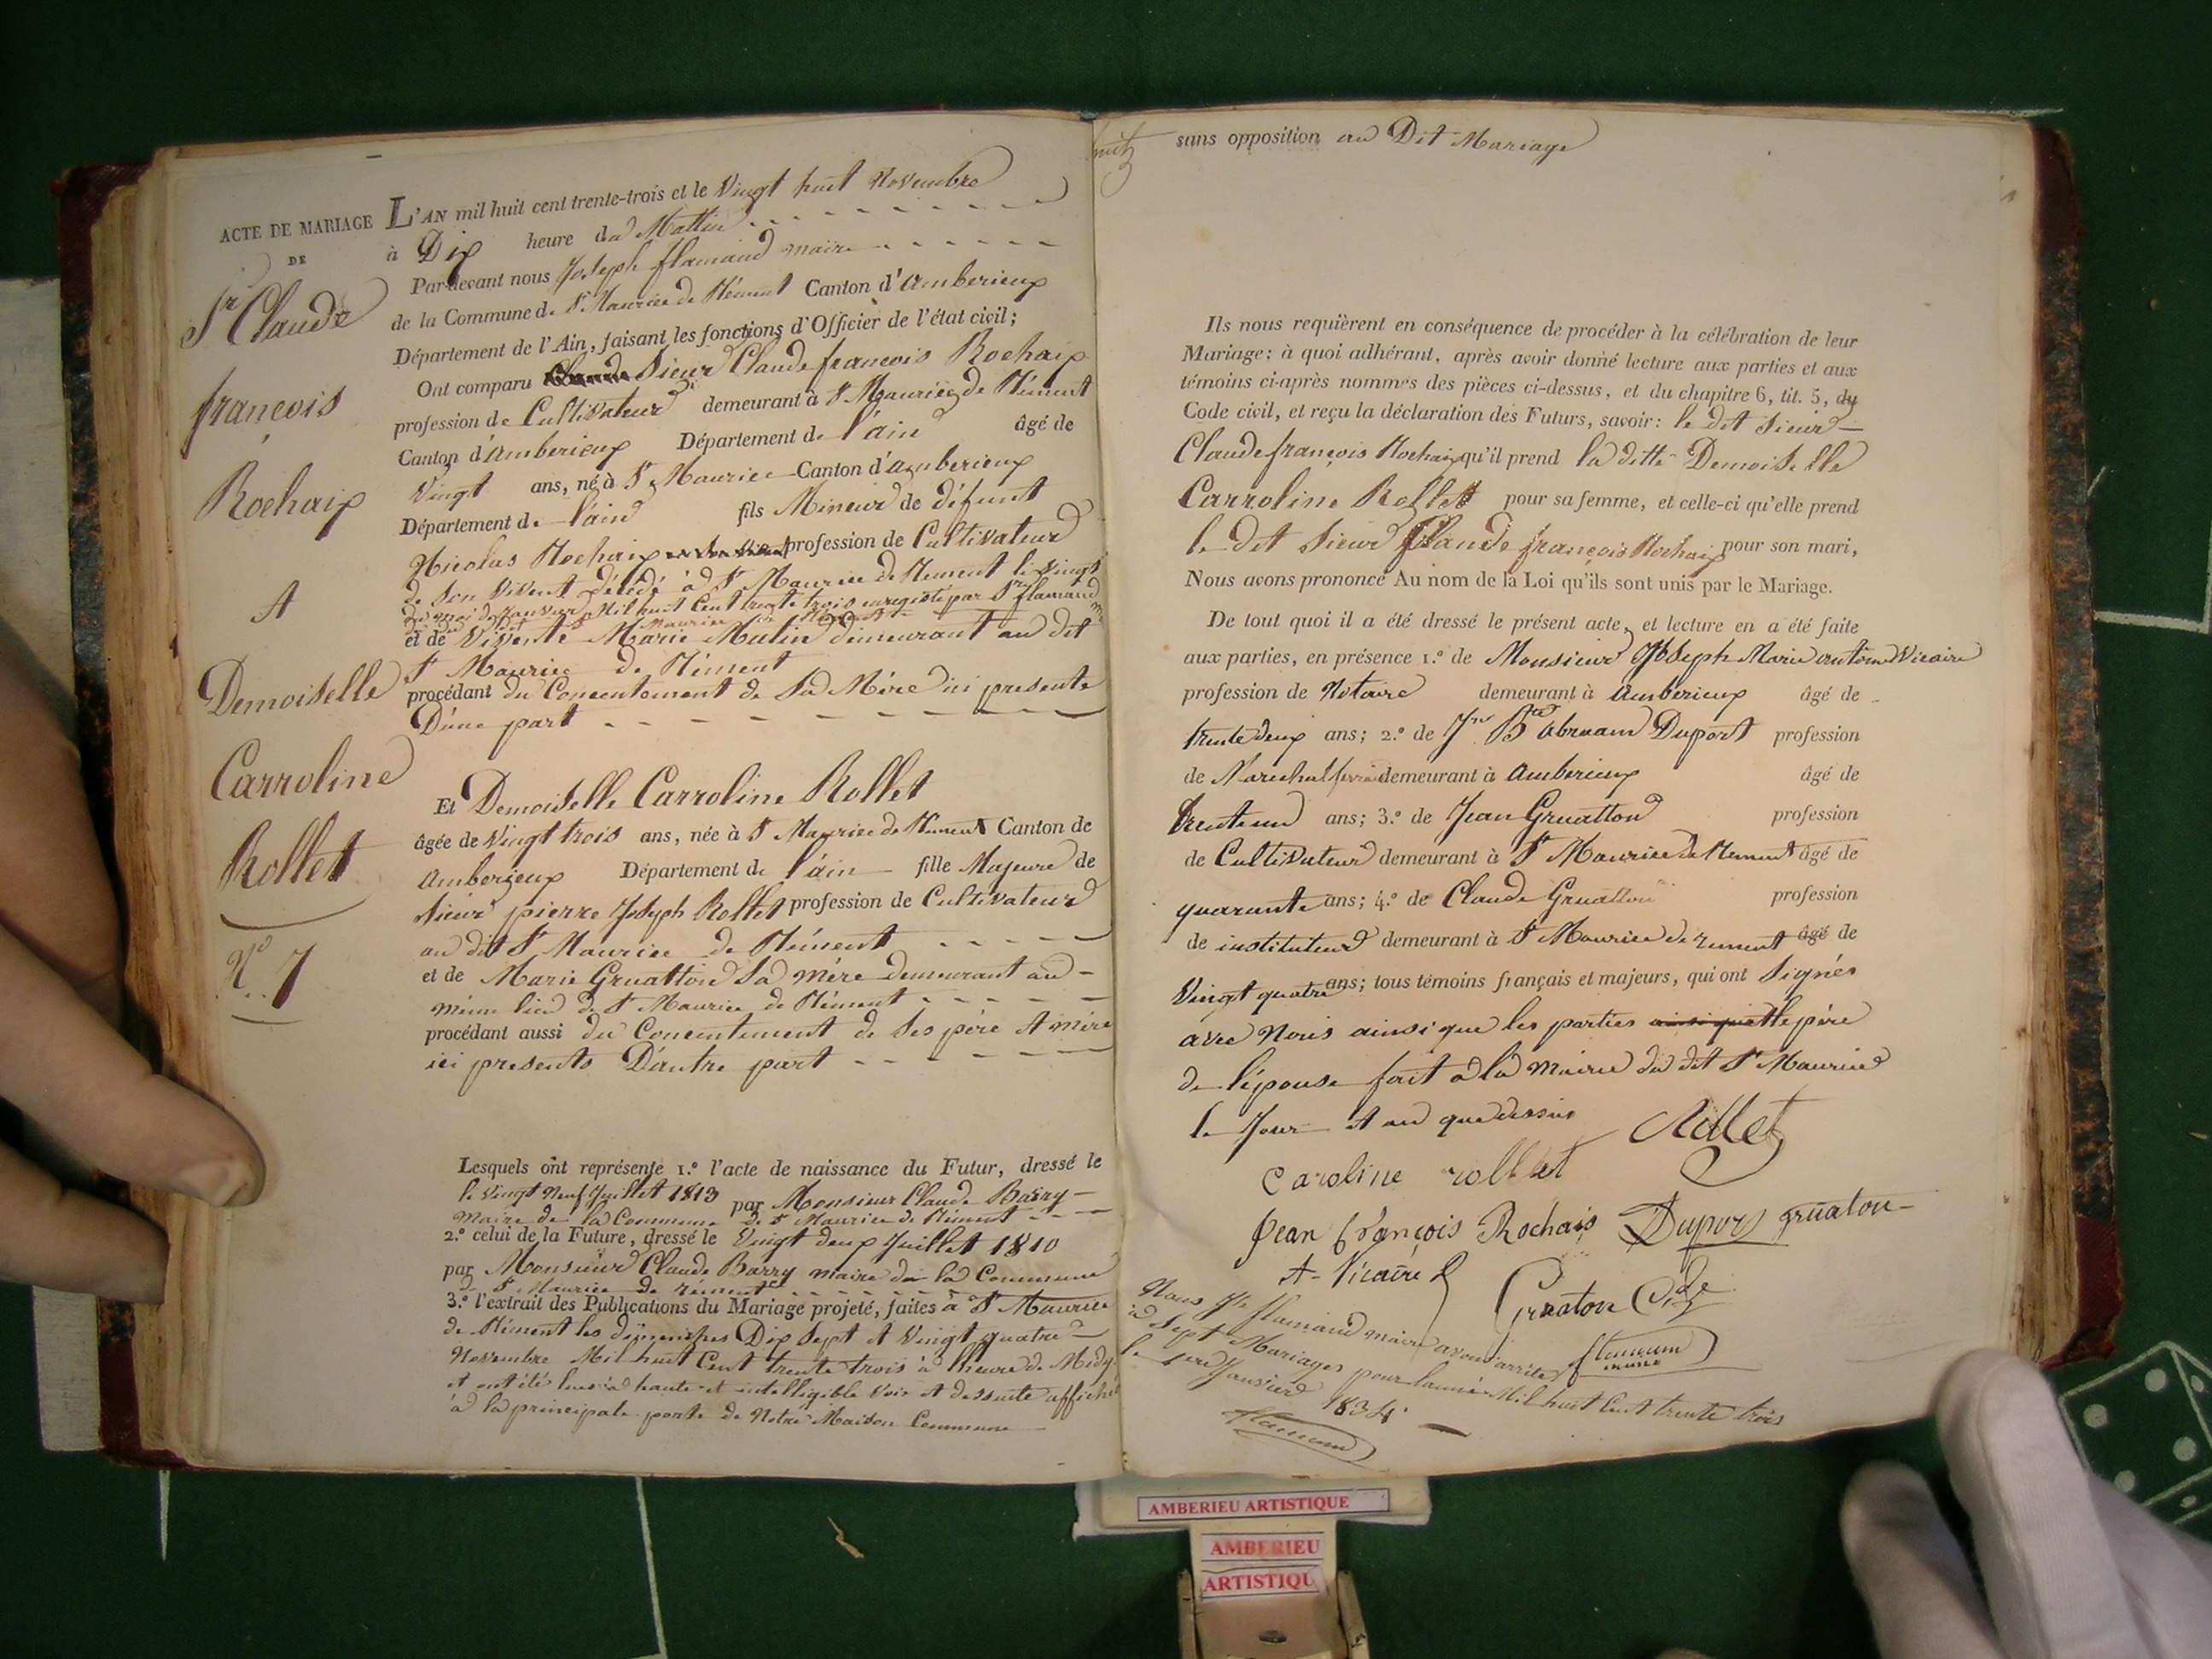 ACTE DE MARIAGE
DE
Sr Claude
françois
Rochaix
A
Demoiselle
Carroline
Rollet
No 7
L'AN mil huit cent trente-trois et le Vingt huit Novembre
à Dix heure du Mattin
Pardevant nous Joseph flamand maire
de la Commune de St. Maurice de Rément Canton d'Amberieux
Département de l'Ain, faisant les fonctions d'Officier de l'état civil;
Ont comparu Sieur Claude francois Rochaix
profession de Cultivateur demeurant à St Maurice de Rément
Canton d'Amberieux Département de l'ain âgé de
Vingt ans, né à St Maurice Canton d'Amberieux
Département de l'ain fils Mineur de défunt
Nicolas Rochaix profession de Cultivateur
de son Vivent Décédé à St Maurice de Rement le vingt
du moi de Janvier Mil huit Cent trente trois enregistre par Sr flamand
Maurice
et de Vivente Marie Mulin demeurant au dit
St Maurice de Rément
procédant du Concentement de Sa Mére ici presente
D'une part
Et Demoiselle Carroline Rollet
âgée de Vingt trois ans, née à St Maurice de Rement Canton de
Amberieux Département de l'ain fille Majeure de
Sieur pierre Joseph Rollet profession de Cultivateur
au dit St Maurice de Rément
et de Marie Gruatton Sa mére demeurant au
même lieu de St Maurice de Rément
procédant aussi du Concentement de Ses pére et mére
ici presents D'autre part
Lesquels ont représenté 1.o l'acte de naissance du Futur, dressé le
le Vingt Neuf Juillet 1813 par Monsieur Claude Barry
maire de la Commune de St Maurice de Rément
2.o celui de la Future, dressé le Vingt deux Juillet 1810
par Monsieur Claude Barry maire de la Commune
de St Maurice de rément
3.o l'extrait des Publications du Mariage projeté, faites à St Maurice
de Rément les dimenches Dix Sept et Vingt quatre
Novembre Mil huit Cent trente trois à l'heure de Midy
et ont étés lus à haute et intelligible Voix et dessuite affiché
à la principale porte de Notre Maison Commune
sans opposition au Dit Mariage
Ils nous requièrent en conséquence de procéder à la célébration de leur
Mariage; à quoi adhérant, après avoir donné lecture aux parties et aux
témoins ci-après nommés des pièces ci-dessus, et du chapitre 6, tit. 5, du
Code civil, et reçu la déclaration des Futurs, savoir: le dit Sieur
Claude françois Rochaix qu'il prend la ditte Demoiselle
Carroline Rollet pour sa femme, et celle-ci qu'elle prend
le dit Sieur Claude françois Rochaix pour son mari,
Nous avons prononcé Au nom de la Loi qu'ils sont unis par le Mariage.
De tout quoi il a été dressé le présent acte, et lecture en a été faite
aux parties, en présence 1.o de Monsieur Joseph Marie antoine Vicaire
profession de Notaire demeurant à Amberieux âgé de
trente deux ans; 2.o de Jn Bte abraam Duport profession
de Marechal ferrand demeurant à Amberieux âgé de
trente un ans; 3.o de Jean Gruatton profession
de Cultivateur demeurant à St Maurice de Rement âgé de
quarante ans; 4.o de Claude Gruatton profession
de instituteur demeurant à St Maurice de rement âgé de
Vingt quatre ans; tous témoins français et majeurs, qui ont Signés
avec Nous ainsi que les parties ainsi que le pére
de l'épouse fait à la Mairie du dit St Maurice
le Jour et an que dessus
Rollet
Caroline rollet
Jean françois Rochais Duport gruaton
A. Vicaire
Gruaton Cde
flamand
maire
Nous Jh flamand maire avons arrêtés
à Sept Mariages pour l'année Mil huit Cent trente trois
le 1er Janvier 1834
flamand
AMBERIEU ARTISTIQUE
AMBERIEU
ARTISTIQU